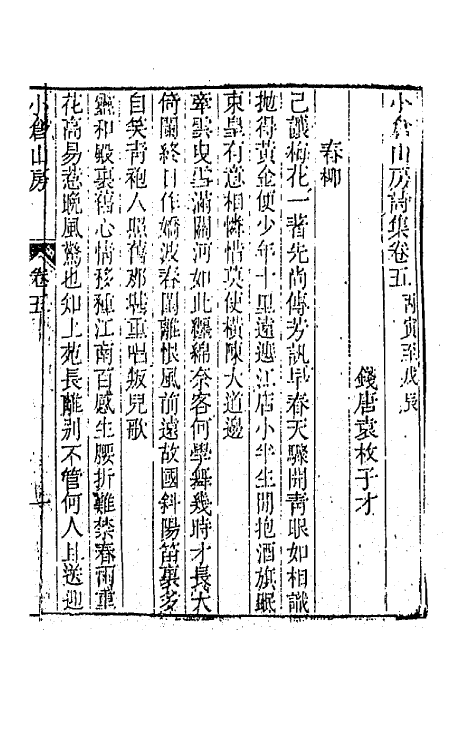 小倉山房詩集卷五 丙寅至戊辰
錢唐袁枚子才
春柳
已讓梅花一著先尚傳芳訊早春天驟開青眼如相識
拋得黃金便少年十里遠遮江店小半生閒抱酒旗眠
東皇有意相憐惜莫使橫陳大道邊
牽雲曳雪滿關河如此纏綿奈客何學舞幾時才長大
倚闌終日作嬌波春閨離恨風前遠故國斜陽笛裏多
自笑青袍人照舊那堪重唱叛兒歌
靈和殿裏舊心情移種江南百感生腰折難禁春雨重
花高易惹晚風驚也知上苑長離別不管何人且送迎
小倉山房 卷五 一